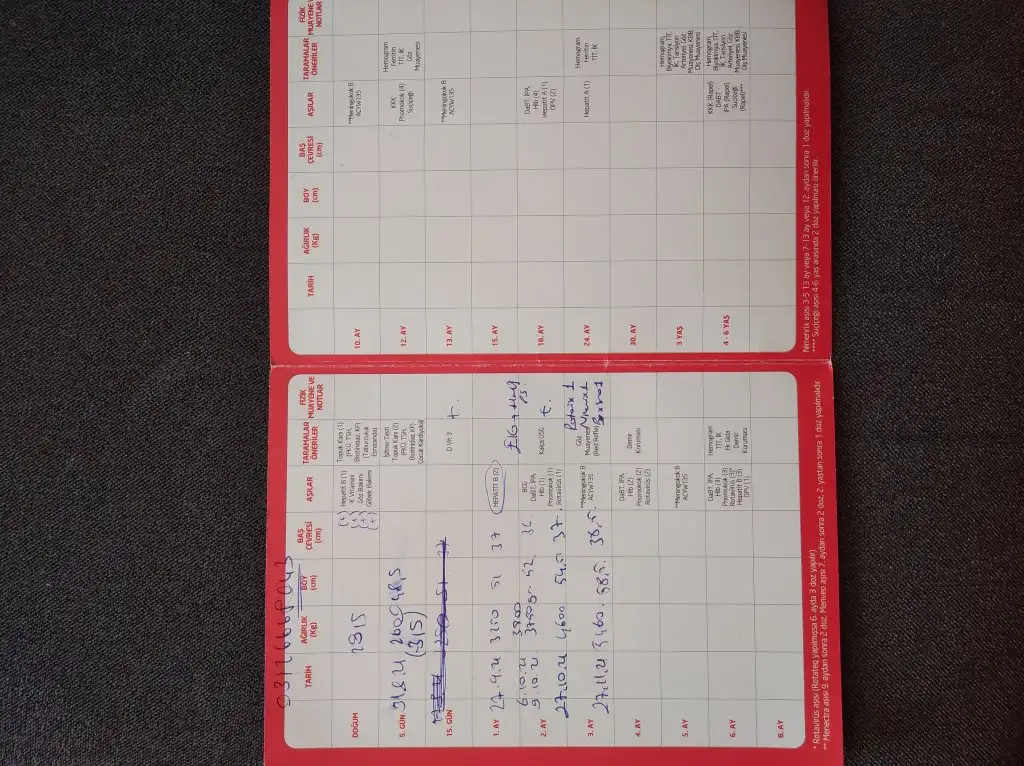 0312666 8043
TARİH
AĞIRLIK
(Kg)
BOY
(cm)
BAŞ
ÇEVRESİ
(cm)
AŞILAR
TARAMALAR
ÖNERİLER
FİZİK
MUAYENE VE
NOTLAR
DOĞUM
2815
(+) Hepatit B (1)
(+) K Vitamini
(+) Göz Bakımı
(+) Göbek Bakımı
Topuk Kanı (1)
(PKU, TSH,
Biotinidaz, KF)
(Taburculuk
Esnasında)
5. GÜN
31.8.21
2600
48,5
İşitme Testi
Topuk Kanı (2)
(PKU, TSH,
Biotinidaz, KF)
Çocuk Kardiyoloji
15. GÜN
D.Vit 3
1. AY
27.9.21
3250
51
37
HEPATİT B (2)
2. AY
6.10.21
9.10.21
3800
52.
36
BCG
DaBT, IPA,
Hib (1)
Pnömokok (1)
Rotavirüs (1)
Kalça USG
27.10.21
4600
54,5
37
3. AY
27.11.21
58,5
38,5
**Meningokok B
ACYW135
Göz
Muayenesi
(Red Refle)
Rotarix 1
Nimenrix 1
Bexsero 1
4. AY
DaBT, IPA,
Hib (2)
Pnömokok (2)
Rotavirüs (2)
Demir
Koruması
5. AY
**Meningokok B
ACYW135
6. AY
DaBT, IPA,
Hib (3)
Pnömokok (3)
Rotavirüs (3)*
Hepatit B (3)
OPV (1)
Hemogram
TİT, İK
Ek Gıda
Demir
Koruması
8. AY
* Rotavirüs aşısı (Rotateq yapılmışsa 6. ayda 3 doz yapılır)
** Menectra aşısı 9. aydan sonra 2 doz, Menveo aşısı 7. aydan sonra 2 doz, 2. yaştan sonra 1 doz yapılmalıdır
TARİH
AĞIRLIK
(Kg)
BOY
(cm)
BAŞ
ÇEVRESİ
(cm)
AŞILAR
TARAMALAR
ÖNERİLER
FİZİK
MUAYENE VE
NOTLAR
10. AY
**Meningokok B
ACYW135
12. AY
KKK
Pnömokok (4)
Suçiçeği
Hemogram
Ferritin
TİT, İK
Göz
Muayenesi
13. AY
**Meningokok B
ACYW135
15. AY
18. AY
DaBT, IPA,
Hib (4)
Hepatit A (1)
OPV (2)
24. AY
Hepatit A (1)
Hemogram
Ferritin
TİT, İK
30. AY
3 YAŞ
Hemogram,
Biyokimya, TİT,
İK, Tansiyon
Arteryel, Göz
Muayenesi, KBB,
Diş Muayenesi
4 - 6 YAŞ
KKK (Rapel)
DaBT -
IPA (Rapel)
Suçiçeği
(Rapel)****
Hemogram,
Biyokimya, TİT,
İK, Tansiyon
Arteryel, Göz
Muayenesi, KBB,
Diş Muayenesi
Nimenrix aşısı 3-5 13 ay veya 7- 13 ay veya 12. aydan sonra 1 doz yapılmalıdır.
**** Suçiçeği aşısı 4-6 yaş arasında 2 doz yapılması önerilir.